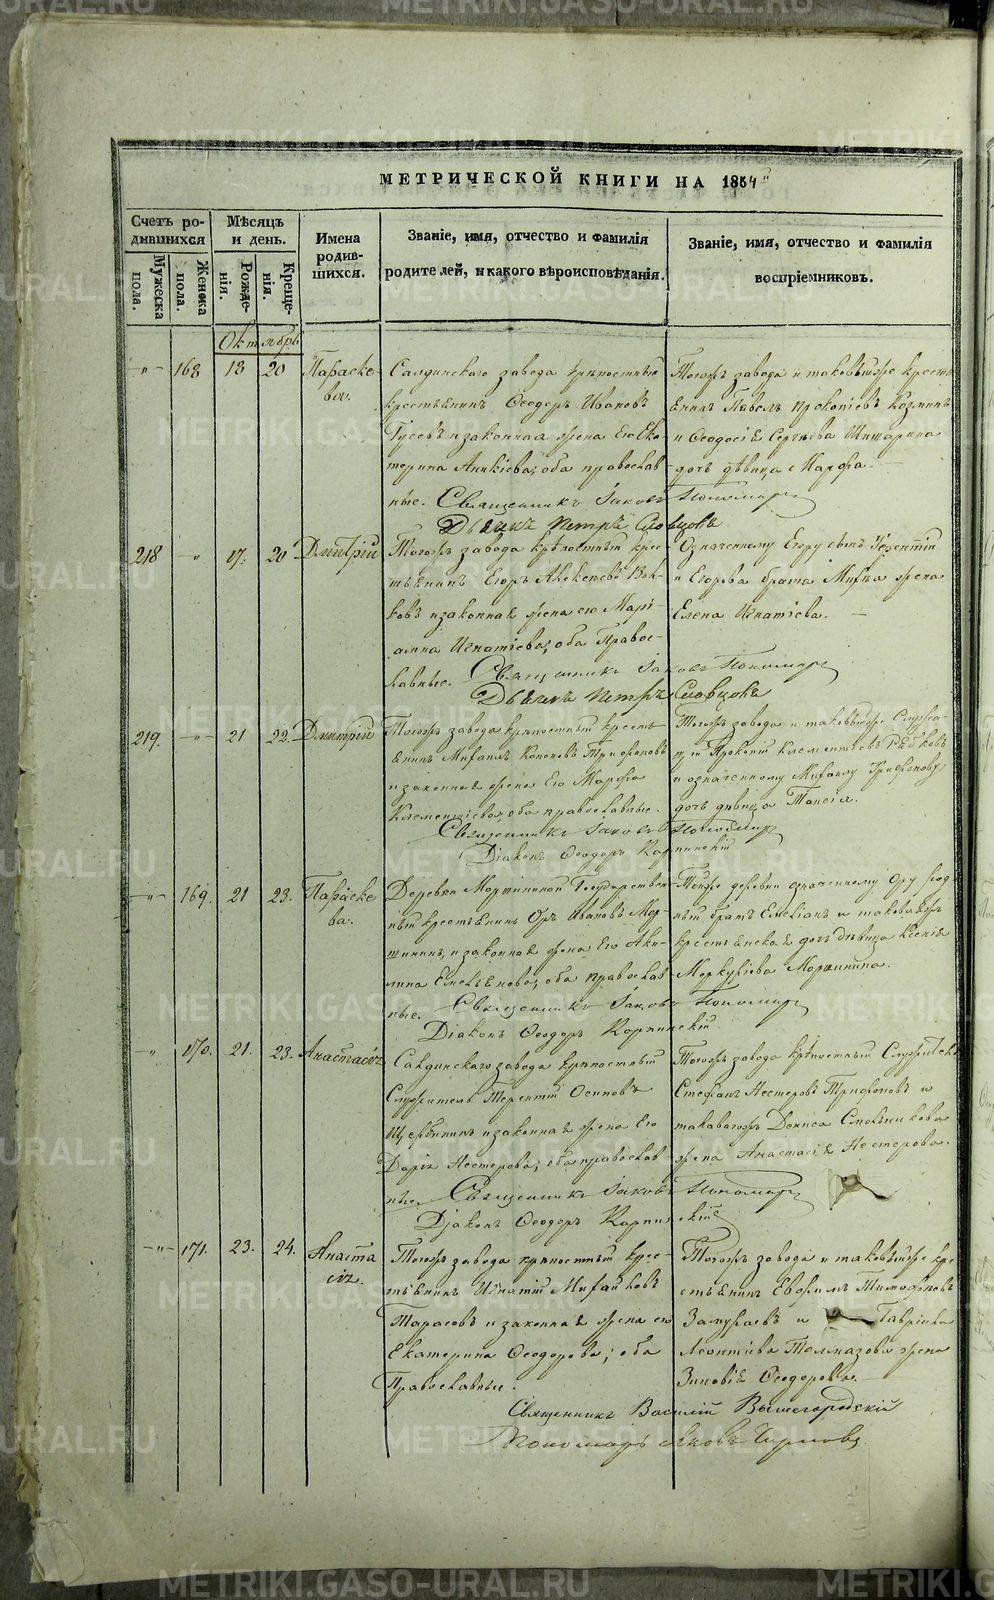 МЕТРИЧЕСКОЙ КНИГИ НА 1854
Счетъ ро-
дившихся
Мѣсяцъ
и день.
Имена
родив-
шихся.
Званіе, имя, отчество и фамилія
родителей, и какого вѣроисповѣданія.
Званіе, имя, отчество и фамилія
воспріемниковъ.
Мужеска
пола.
Женска
пола.
Рожде-
нія.
Креще-
нія.
Октябрь
168 13 20 Параске-
ва.
Салдинскаго завода крѣпостный
крестьянинъ Ѳеодоръ Ивановъ
Гусевъ и законная жена его Ека-
терина Аникіева, оба православ-
ные. Священникъ Іаковъ Пономаревъ
Дьячекъ Петръ Словцовъ
Тогожъ завода и таковыйже кресть-
янинъ Павелъ Прокопіевъ
и Ѳеодосія Сергѣева
дочь дѣвица Марѳа.
218 17. 20 Дмитрій
Тогожъ завода крѣпостный крес-
тьянинъ Егоръ Вол-
ковъ и законная жена его Марі-
анна Игнатіева, оба Правос-
лавные. Священникъ Іаковъ Пономаревъ
Дьячекъ Петръ Словцовъ
Означенному Егору сынъ Терентій
и Егорова брата жена
Елена Игнатіева.
219. 21 22. Дмитрій
Тогожъ завода крѣпостный кресть-
янинъ Михаилъ Кононовъ Трифоновъ
и законная жена его Марѳа
Клементіева, оба православные.
Священникъ Іаковъ Пономаревъ
Діаконъ Ѳеодоръ Карпинскій
Тогожъ завода и таковыйже Служа-
щій Прокопій Клементіевъ
и означенному Михаилу Трифонову
дочь дѣвица Таисія.
169. 21 23. Параске
ва.
Деревни Моршининой Государствен-
ный крестьянинъ Оръ Ивановъ Мор-
шининъ и законная жена его Аку-
лина Емельянова, оба православ-
ные. Священникъ Іаковъ Пономаревъ
Діаконъ Ѳеодоръ Карпинскій
Тойже деревни означенному Ору род-
ный братъ Емеліанъ и таковагожъ
крестьянская дочь дѣвица Ксенія
Меркуріева Моршинина.
170. 21. 23. Анастасія
Салдинскаго завода крѣпостный
Служитель Терентій Осиповъ
Щербининъ и законная жена его
Дарія Нестерова; оба православ
ные. Священникъ Іаковъ Пономаревъ
Діаконъ Ѳеодоръ Карпинскій
Тогожъ завода крѣпостный Служитель
Стефанъ Нестеровъ Трифоновъ и
таковагожъ Дениса
жена Анастасія Нестерова.
171. 23. 24. Анаста
сія.
Тогожъ завода крѣпостный крес-
тьянинъ Игнатій Михайловъ
Тарасовъ и законная жена его
Екатерина Ѳеодорова; оба
Православные.
Тогожъ завода и таковыйже кре-
стьянинъ Евфимъ Тимофеевъ
и Гавріила
Леонтіева Толмазова жена
Зиновія Ѳеодорова.
Священникъ Василій Вышегородскій
Пономарь Яковъ